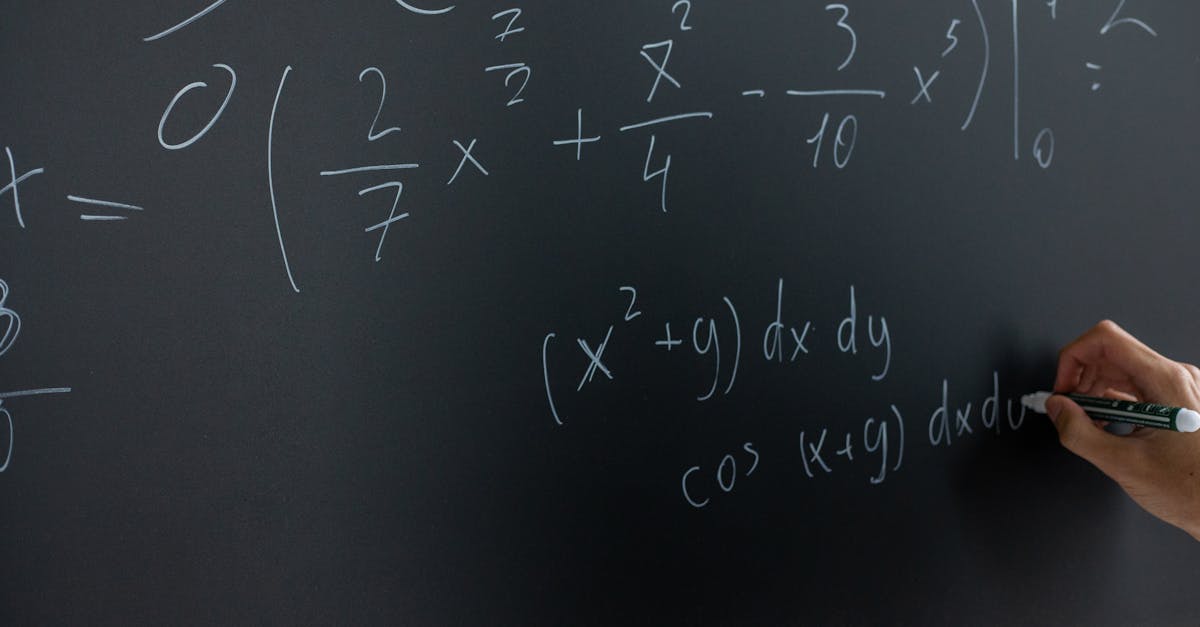 x = 0 ( 2/7 x^(7/2) + x^2/4 - 3/10 x^5 ) |_0 =
(x^2 + y) dx dy
cos (x+y) dx dy